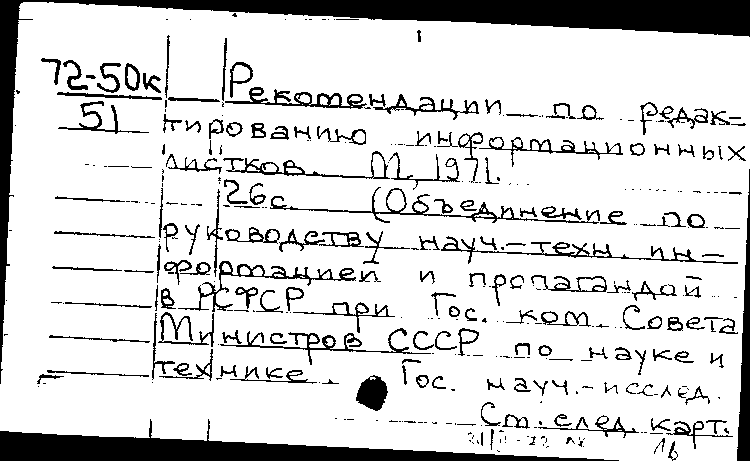 72-50к
51
Рекомендации по редак=
тированию информационных
листков. М., 1971.
26с. (Объединение по
руководству науч.-техн. ин=
формацией и пропагандой
в РСФСР при Гос. ком. Совета
Министров СССР по науке и
технике. Гос. науч.-исслед.
См. след. карт.
1б